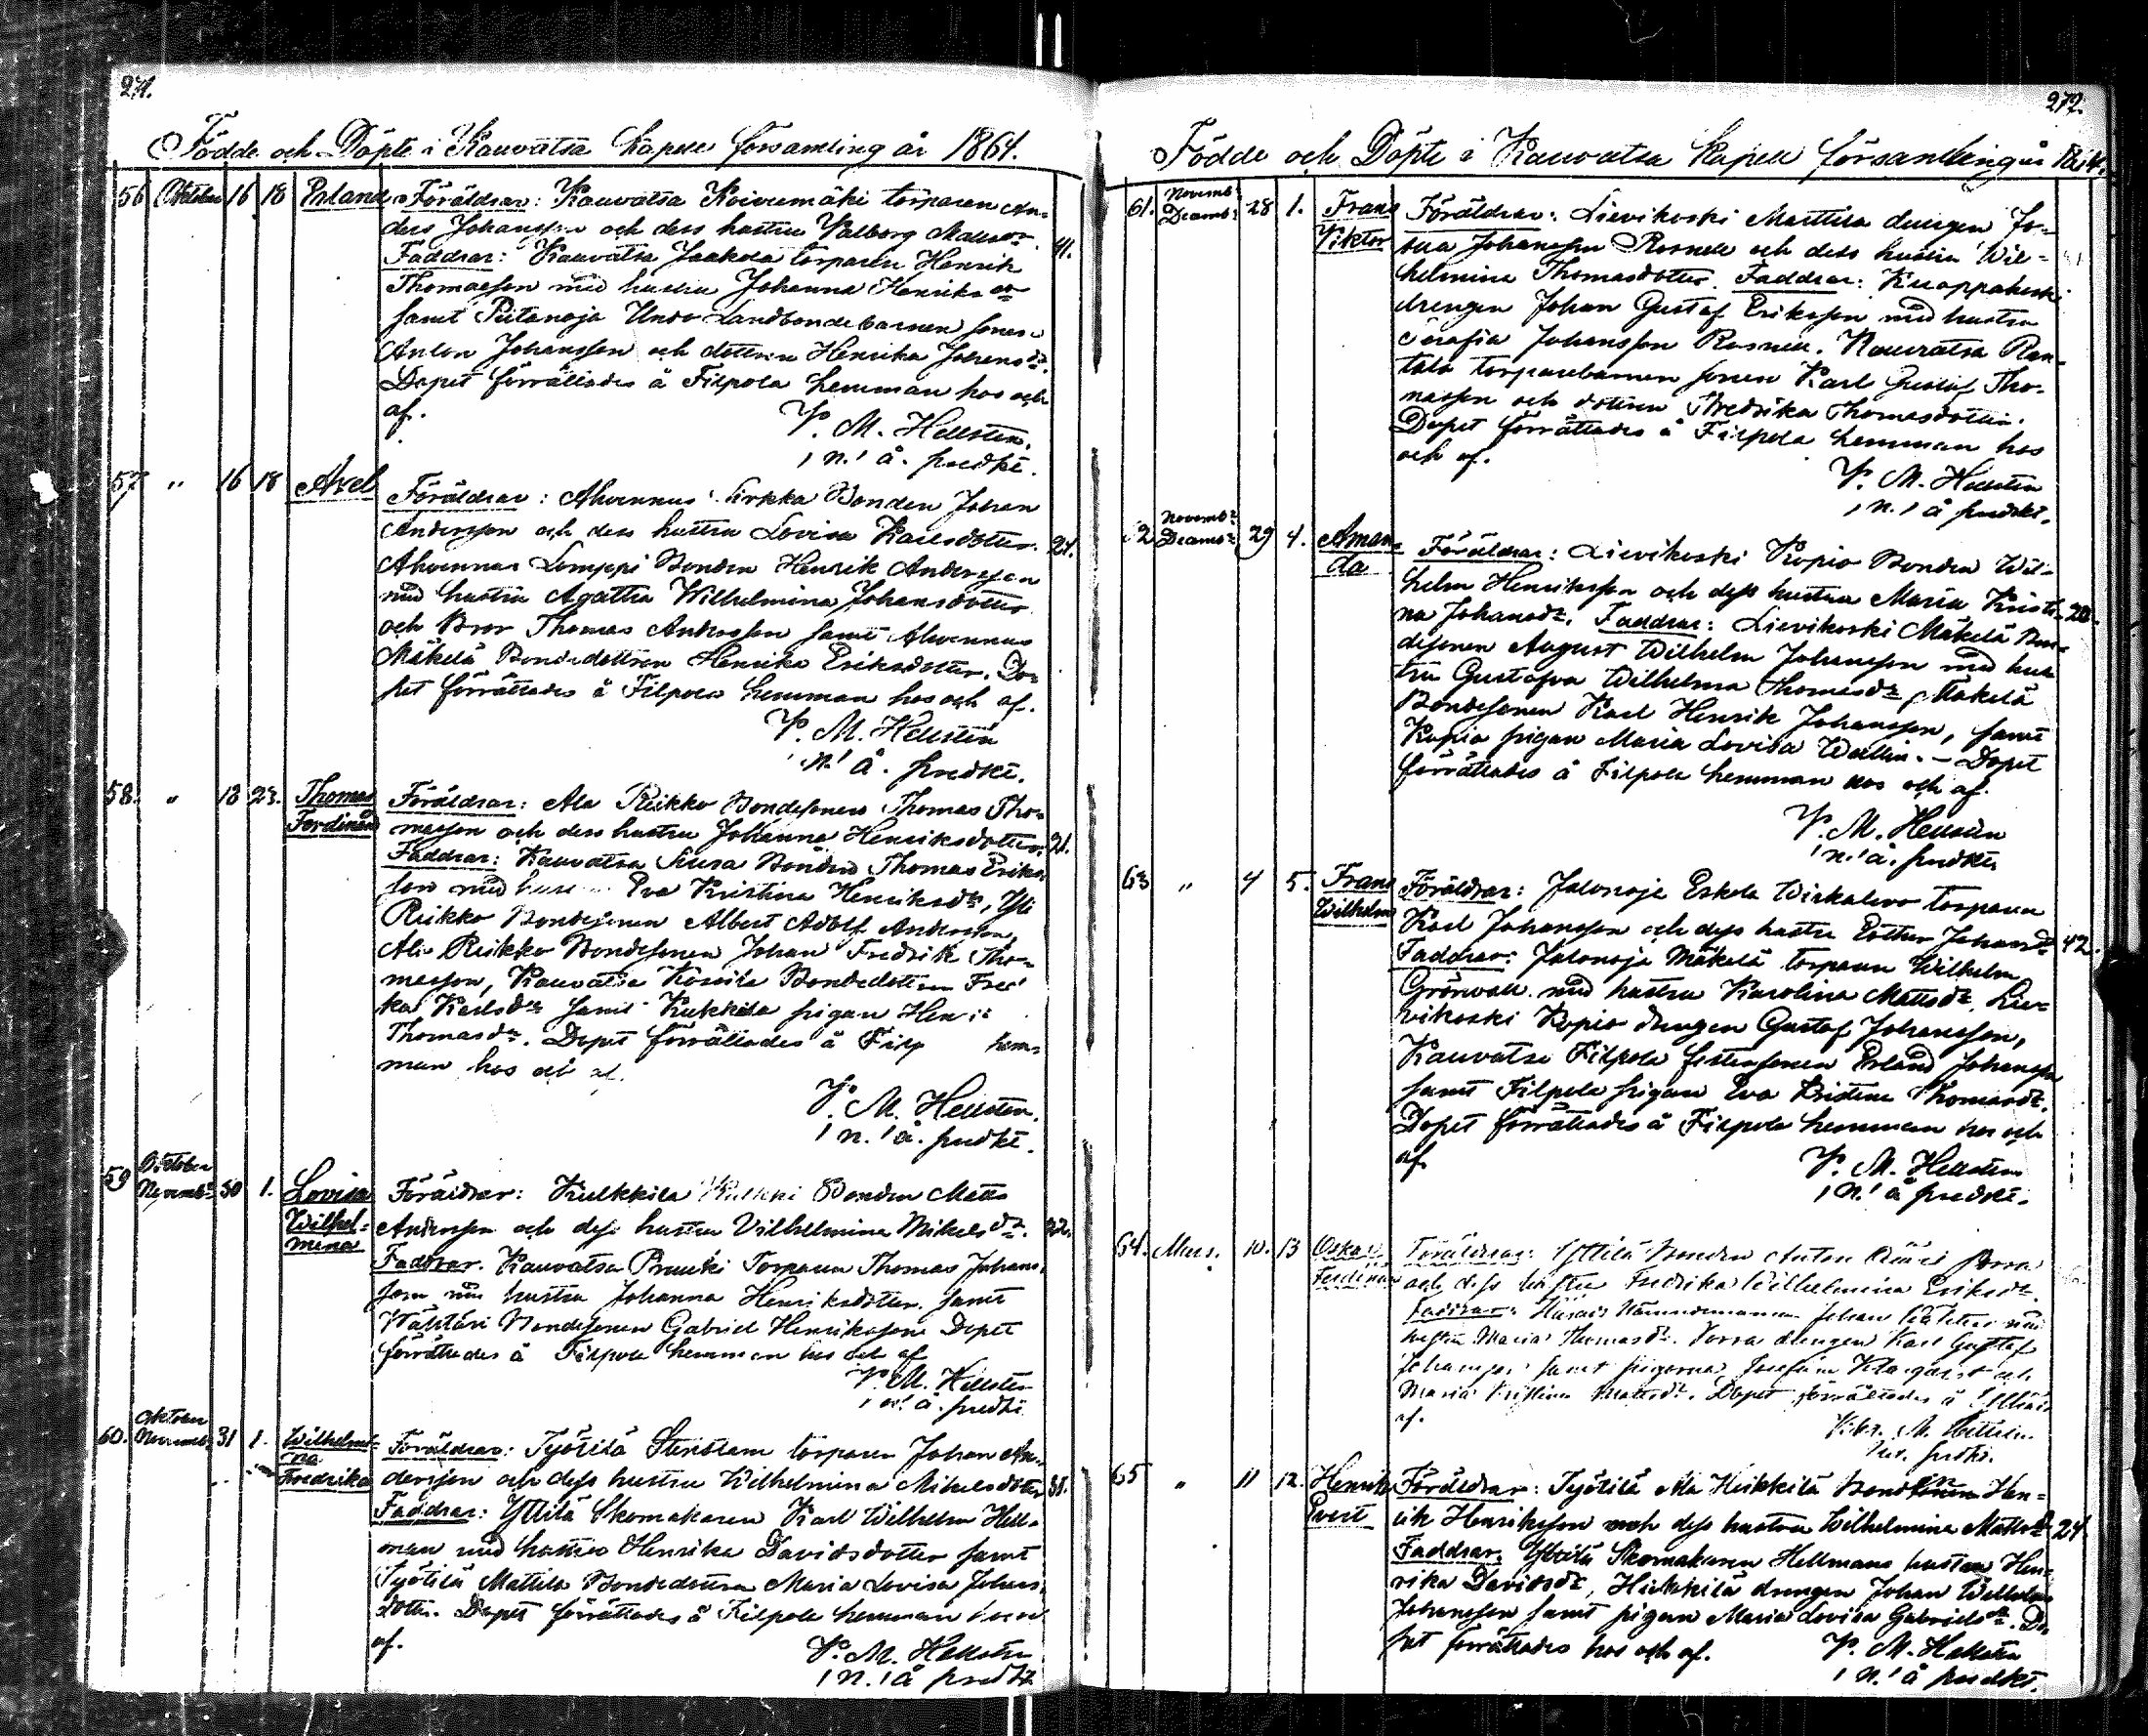 271.
Födde och Döpte i Kauvatsa Kapell församling år 1864.
56 Oktober 16 18 Erland Föräldrar: Kauvatsa Koivumäki torparen An-
ders Johansson och dess hustru Valborg Matts dr. 41.
Faddrar: Kauvatsa Jaakola torparen Henrik
Thomasson med hustru Johanna Henriks dr
samt Piitanoja Landbondebarnen sonen
Anton Johansson och dottren Henrika Johans dr.
Dopet förrättades å Filpola hemman hos och
af.
V. M. Hellsten.
n. å. predkt.
57 " 16 18 Axel
Föräldrar: Ahvennus Sirkka Bonden Johan
Andersson och dess hustru Lovisa Karlsdotter. 24.
Ahvennus Lomppi Bonden Henrik Andersson
med hustru Agatha Wilhelmina Johansdotter
och Bror Thomas Andersson samt Ahvennus
Mäkelä Bondedottren Henrika Eriksdotter. Do-
pet förrättades å Filpola hemman hos och af.
V. M. Hellsten
n. å. predkt.
58. " 18 23. Thomas Ferdinand
Föräldrar: Ala Riikko Bondesonen Thomas Tho-
masson och dess hustru Johanna Henriksdotter. 21.
Faddrar: Kauvatsa Bonden Thomas Eriks-
son med Eva Kristina Henriksdr, Yli
Riikko Bondesonen Albert Adolf Andersson,
Ala Riikko Bondesonen Johan Fredrik Tho-
masson, Kauvatsa Bondedottren
Karlsdr samt Kukkila pigan
Thomasdr. Dopet förrättades å Filp hem-
man hos och af.
V. M. Hellsten.
n. å. predkt.
59 Oktober Novembr 30 1. Lovisa Wilhel- mina
Föräldrar: Kulkkila Bonden Matts
Andersson och dess hustru Vilhelmina Mikels dr. 22.
Faddrar. Kauvatsa Pruuki Torparen Thomas Johans-
son med hustru Johanna Henriksdotter. samt
Bondesonen Gabriel Henriksson Dopet
förrättades å Filpola hemman hos och af
V. M. Hellsten
n. å. predkt.
60. Oktober Novembr 31 1. Wilhelmi- na Fredrika
Föräldrar: Työtilä Stenstam torparen Johan An-
dersson och dess hustru Wilhelmina Mikelsdotter 31.
Faddrar: Yttilä Skomakaren Karl Wilhelm Hell-
man med hustru Henrika Davidsdotter samt
Työtilä Mattila Bondedottren Maria Lovisa Johans-
dotter. Dopet förrättades å Filpola hemman hos och
af.
V. M. Hellsten
n. å predkt
272.
Födde och Döpte i Kauvatsa Kapell församling år 1864.
61. Novembr Decembr 28 1. Frans Viktor
Föräldrar: Lievikoski Marttila drengen Jo-
sua Johansson Rosnell och dess hustru Wil-
helmina Thomasdotter. Faddrar: Knappakoski
drengen Johan Gustaf Eriksson med hustru
Serafia Johansson Rosnell. Kauvatsa Ran-
tala torparebarnen sonen Karl Gustaf Tho-
masson och dottren Fredrika Thomasdotter.
Dopet förrättades å Filpola hemman hos
och af.
V. M. Hellsten
n. å predkt.
62 Novembr Decembr 29 4. Aman- da
Föräldrar: Lievikoski Kopio Bonden Wil-
helm Henriksson och dess hustru Maria Kristi- 20.
na Johansdr. Faddrar: Lievikoski Mäkelä Bon-
desonen August Wilhelm Johansson med hus-
tru Gustafva Wilhelmina Thomasdr, Mäkelä
Bondesonen Karl Henrik Johansson, samt
Kopio pigan Maria Lovisa Wallin. – Dopet
förrättades å Filpola hemman hos och af.
V. M. Hellsten
n. å. predkt.
63 " 4 5. Frans Wilhelm
Föräldrar: Jalonoja Eskola Wirkalevo torparen
Karl Johansson och dess hustru Esther Johansdr 42.
Faddrar: Jalonoja Mäkelä torparen Wilhelm
Grönvall med hustru Karolina Mattsdr. Lie-
vikoski Kopio drengen Gustaf Johansson,
Kauvatsa Filpola Erland Johansson
samt Filpola pigan Eva Kristina Thomasdr.
Dopet förrättades å Filpola hemman hos och
af.
V. M. Hellsten
n. å predkt.
64. 10. 13 Oskar Ferdinand
Föräldrar: Yttilä Bonden Anton
och dess hustru Fredrika Wilhelmina Eriksdr.
Faddrar: Nämndemannen Johan med
hustru Maria Thomasdr. drengen Karl Gustaf
Johansson samt pigorna Josefina och
Maria Kristina Mattsdr. Dopet förrättades å
af.
M. Hellsten.
65 " 11 12. Henrik Evert
Föräldrar: Työtilä Ala Heikkilä Bondesonen Hen-
rik Henriksson och dess hustru Wilhelmina Mattsdr 24.
Faddrar: Yttilä Skomakaren Hellmans hustru Hen-
rika Davidsdr, Heikkilä drengen Johan Wilhelm
Johansson samt pigan Maria Lovisa Gabriels dr. Do-
pet förrättades hos och af.
V. M. Hellsten
n. å predkt.